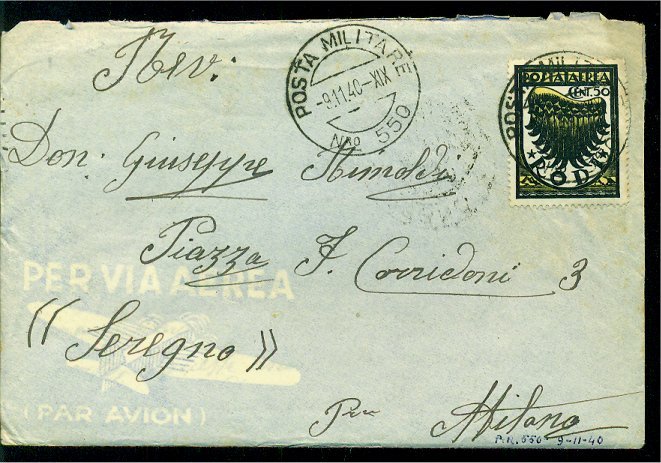 Rev:
POSTA MILITARE
-9.11.40-XIX
Nro 550
POSTA AEREA
CENT. 50
RODI
Don. Giuseppe
Piazza F. Corridoni 3
PER VIA AEREA
"Seregno"
(PAR AVION)
Per Milano
P.M. 550 9-11-40